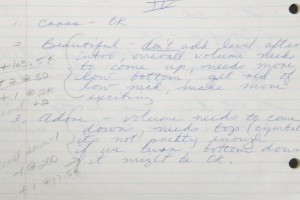 IV
1. Cross - OK
2. Beautiful - don't add level after
intro, overall volume needs
to come up, needs more
low bottom, get rid of
low mid, make more
exciting
+2 @ 50
+1 @ 2K
+2
3. Adore - volume needs to come
down, needs top (cymbals)
it's not pretty enough
if we turn bottom down
it might be OK.
-1 @ 200